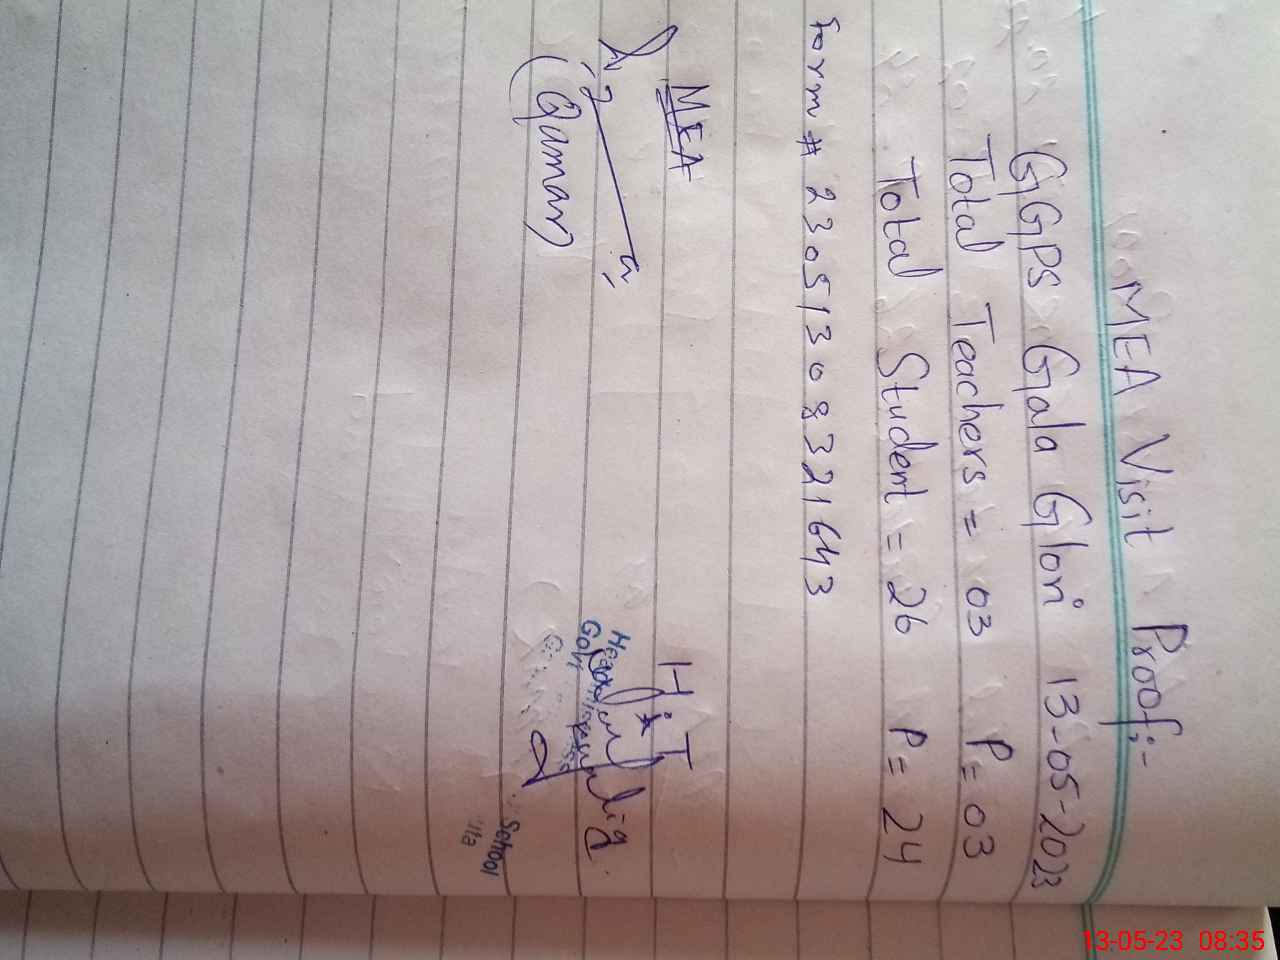 MEA Visit Proof:-
GGPS Gala Glori 13-05-2023
Total Teachers = 03 P = 03
Total Student = 26 P = 24
Form # 23051308321643
MEA H.T
(Qamar)
School
13-05-23 08:35